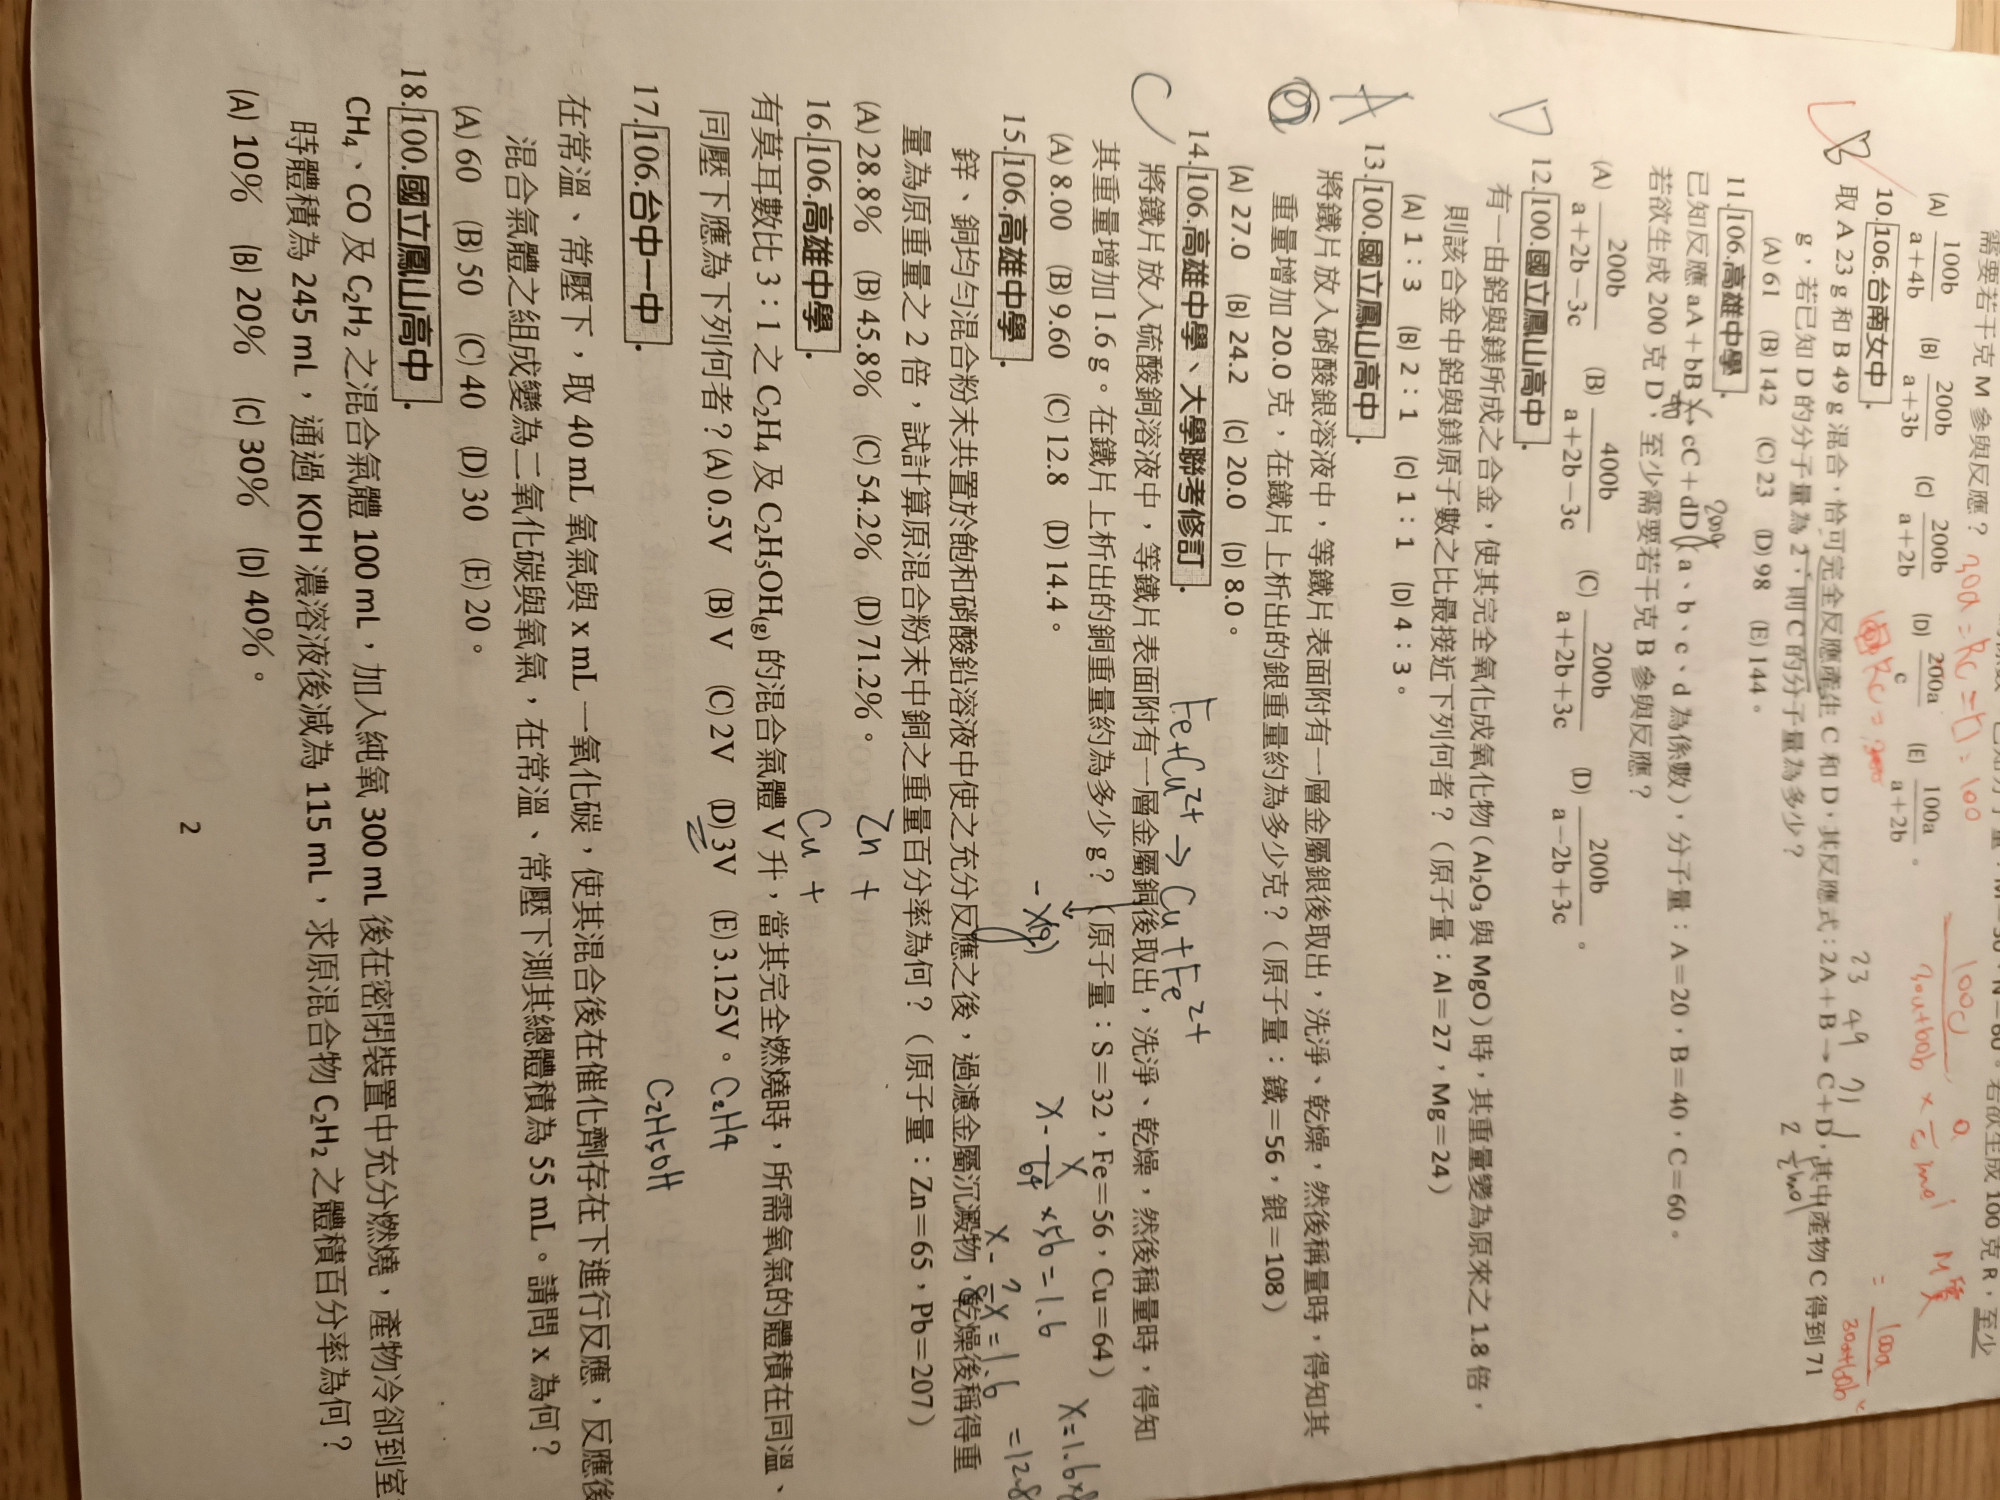 需要若干克 M 參與反應？ 30a=Rc=D=100
(A) 100b/a+4b (B) 200b/a+3b (C) 200b/a+2b (D) 200a/c (E) 100a/a+2b。
10. 106.台南女中.
取 A 23 g 和 B 49 g 混合，恰可完全反應產生 C 和 D，其反應式：2A＋B→C＋D，其中產物 C 得到 71
g，若已知 D 的分子量為 2，則 C 的分子量為多少？
(A) 61 (B) 142 (C) 23 (D) 98 (E) 144。
11. 106.高雄中學.
已知反應 aA＋bB→cC＋dD（a、b、c、d 為係數），分子量：A＝20，B＝40，C＝60。
若欲生成 200 克 D，至少需要若干克 B 參與反應？
(A) 200b/a+2b−3c (B) 400b/a+2b−3c (C) 200b/a+2b+3c (D) 200b/a−2b+3c。
D
12. 100.國立鳳山高中.
有一由鋁與鎂所成之合金，使其完全氧化成氧化物（Al₂O₃ 與 MgO）時，其重量變為原來之 1.8 倍，
則該合金中鋁與鎂原子數之比最接近下列何者？（原子量：Al＝27，Mg＝24）
(A) 1：3 (B) 2：1 (C) 1：1 (D) 4：3。
A
13. 100.國立鳳山高中.
將鐵片放入硝酸銀溶液中，等鐵片表面附有一層金屬銀後取出，洗淨、乾燥，然後稱量時，得知其
重量增加 20.0 克，在鐵片上析出的銀重量約為多少克？（原子量：鐵＝56，銀＝108）
(A) 27.0 (B) 24.2 (C) 20.0 (D) 8.0。
C
14. 106.高雄中學、大學聯考修訂.
Fe+Cu²⁺→Cu+Fe²⁺
將鐵片放入硫酸銅溶液中，等鐵片表面附有一層金屬銅後取出，洗淨、乾燥，然後稱量時，得知
其重量增加 1.6 g。在鐵片上析出的銅重量約為多少 g？（原子量：S＝32，Fe＝56，Cu＝64）
(A) 8.00 (B) 9.60 (C) 12.8 (D) 14.4。
x−x/64×56=1.6
x−7/8x=1.6
=12.8
15. 106.高雄中學.
鋅、銅均勻混合粉末共置於飽和硝酸鉛溶液中使之充分反應之後，過濾金屬沉澱物，乾燥後稱得重
量為原重量之 2 倍，試計算原混合粉末中銅之重量百分率為何？（原子量：Zn＝65，Pb＝207）
(A) 28.8% (B) 45.8% (C) 54.2% (D) 71.2%。
Zn +
Cu +
16. 106.高雄中學.
有莫耳數比 3：1 之 C₂H₄ 及 C₂H₅OH₍g₎ 的混合氣體 V 升，當其完全燃燒時，所需氧氣的體積在同溫、
同壓下應為下列何者？(A) 0.5V (B) V (C) 2V (D) 3V (E) 3.125V。 C₂H₄
C₂H₅OH
17. 106.台中一中.
在常溫、常壓下，取 40 mL 氧氣與 x mL 一氧化碳，使其混合後在催化劑存在下進行反應，反應後
混合氣體之組成變為二氧化碳與氧氣，在常溫、常壓下測其總體積為 55 mL。請問 x 為何？
(A) 60 (B) 50 (C) 40 (D) 30 (E) 20。
18. 100.國立鳳山高中.
CH₄、CO 及 C₂H₂ 之混合氣體 100 mL，加入純氧 300 mL 後在密閉裝置中充分燃燒，產物冷卻到室
時體積為 245 mL，通過 KOH 濃溶液後減為 115 mL，求原混合物 C₂H₂ 之體積百分率為何？
(A) 10% (B) 20% (C) 30% (D) 40%。
2